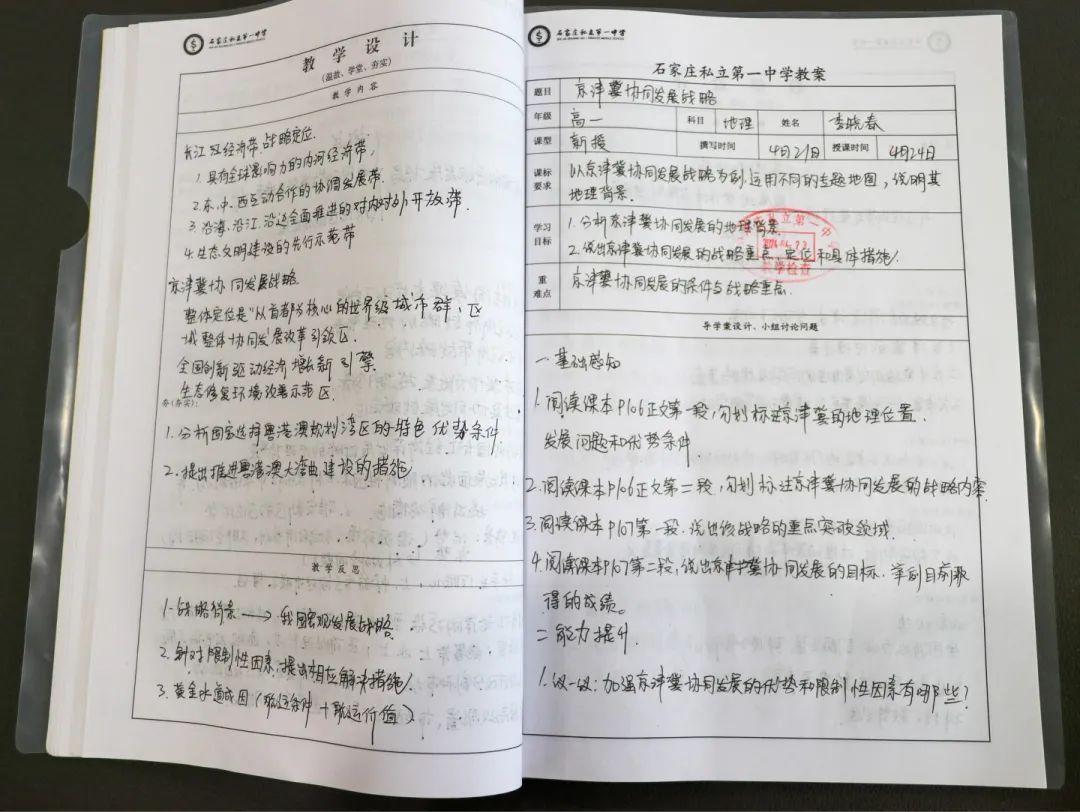 石家庄私立第一中学
教学设计
(温故、学堂、夯实)
教学内容
长江经济带战略定位
1. 具有全球影响力的内河经济带,
2. 东、中、西互动合作的协调发展带.
3. 沿海、沿江、沿边全面推进的对内对外开放带.
4. 生态文明建设的先行示范带
京津冀协同发展战略
整体定位是"以首都为核心的世界级城市群,区
域整体协同发展改革引领区.
全国创新驱动经济增长新引擎.
生态修复环境改善示范区.
夯(夯实):
1. 分析国家选择粤港澳规划湾区的特色优势条件.
2. 提出推进粤港澳大湾曲建设的措施
教学反思
1. 战略背景 → 我国宏观发展战略.
2. 针对限制性因素, 提出相应解决措施
3. 黄金水道成因(航运条件+航运价值)
石家庄私立第一中学
石家庄私立第一中学教案
题目 京津冀协同发展战略
年级 高一 科目 地理 姓名 李晓春
课型 新授 撰写时间 4月21日 授课时间 4月24日
课标要求 以京津冀协同发展战略为例.运用不同的主题地图,说明其
地理背景.
学习目标 1. 分析京津冀协同发展的地理背景.
2. 说出京津冀协同发展的战略重点、定位和具体措施.
重难点 京津冀协同发展的条件与战略重点.
教学检查
导学案设计、小组讨论问题
一 基础感知
1. 阅读课本P106正文第一段,勾划标注京津冀的地理位置.
发展问题和优势条件
2. 阅读课本P106正文第二段,勾划标注京津冀协同发展的战略内容
3. 阅读课本P107第一段. 说出该战略的重点突破领域.
4. 阅读课本P107第二段,说出京津冀协同发展的目标. 举例目前取
得的成绩。
二 能力提升.
1. 议一议: 加强京津冀协同发展的优势和限制性因素有哪些?